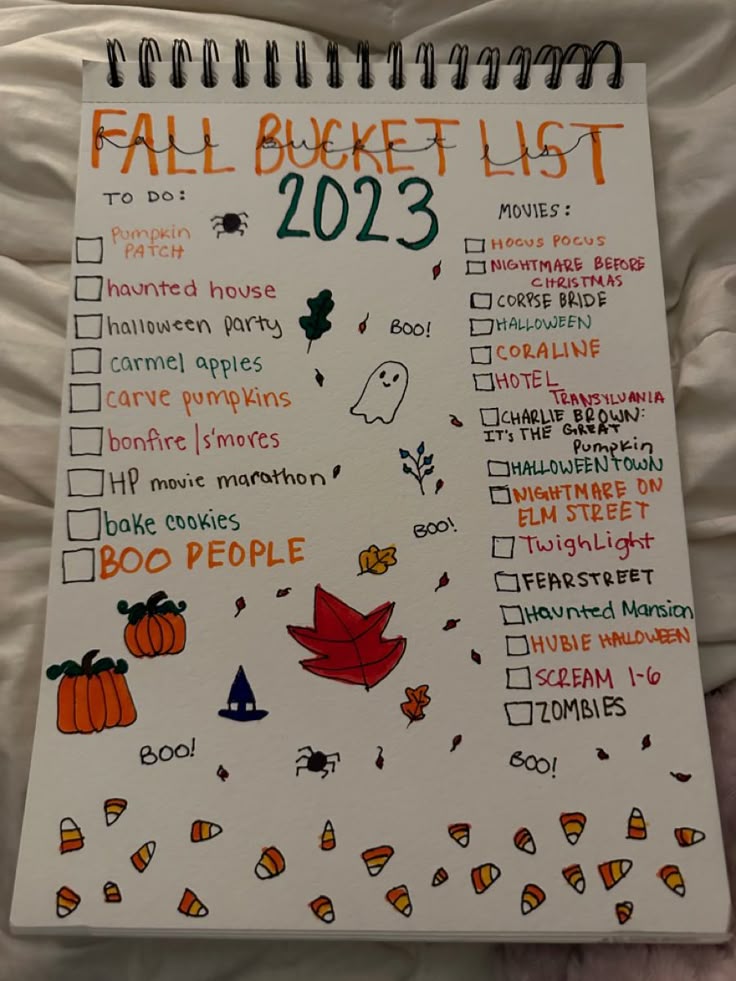 FALL BUCKET LIST
Fall bucket list
2023
TO DO:
Pumpkin
PATCH
haunted house
halloween party
carmel apples
carve pumpkins
bonfire/s'mores
HP movie marathon
bake cookies
BOO PEOPLE
MOVIES:
HOCUS POCUS
NIGHTMARE BEFORE
CHRISTMAS
CORPSE BRIDE
HALLOWEEN
CORALINE
HOTEL
TRANSYLVANIA
CHARLIE BROWN:
IT'S THE GREAT
Pumpkin
HALLOWEENTOWN
NIGHTMARE ON
ELM STREET
TwighLight
FEARSTREET
Haunted Mansion
HUBIE HALLOWEEN
SCREAM 1-6
ZOMBIES
BOO!
BOO!
BOO!
BOO!